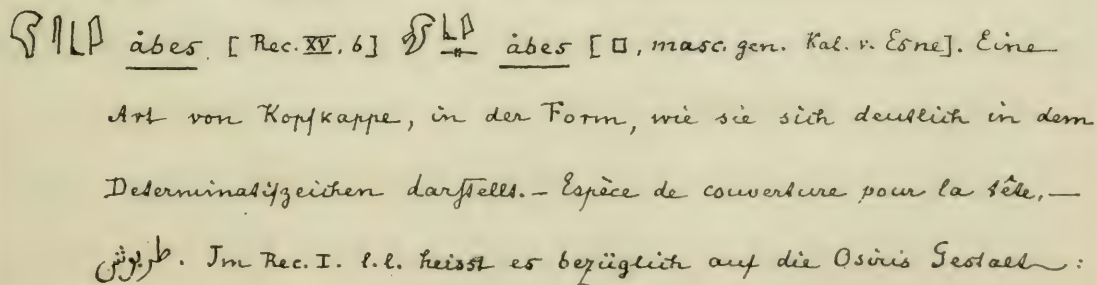 åbes [Rec. XV, 6] åbes [◻, masc. gen. Kal. v. Esne]. Eine
Art von Kopfkappe, in der Form, wie sie sich deutlich in dem
Determinatifzeichen darstellt. – Espèce de couverture pour la tête. –
طربوش. Im Rec. I. l.l. heisst es bezüglich auf die Osiris Gestalt: